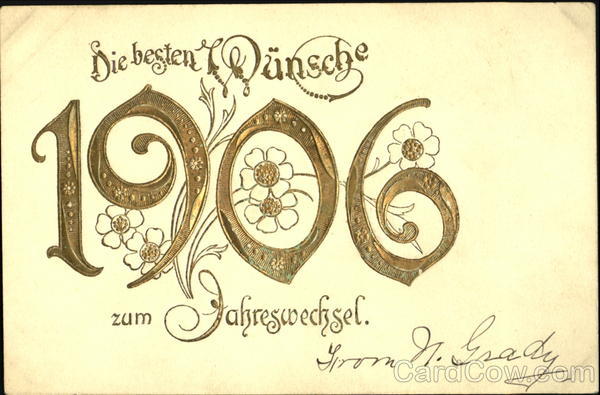 Die besten Wünsche
1906
zum Jahreswechsel.
From N. Grady
CardCow.com